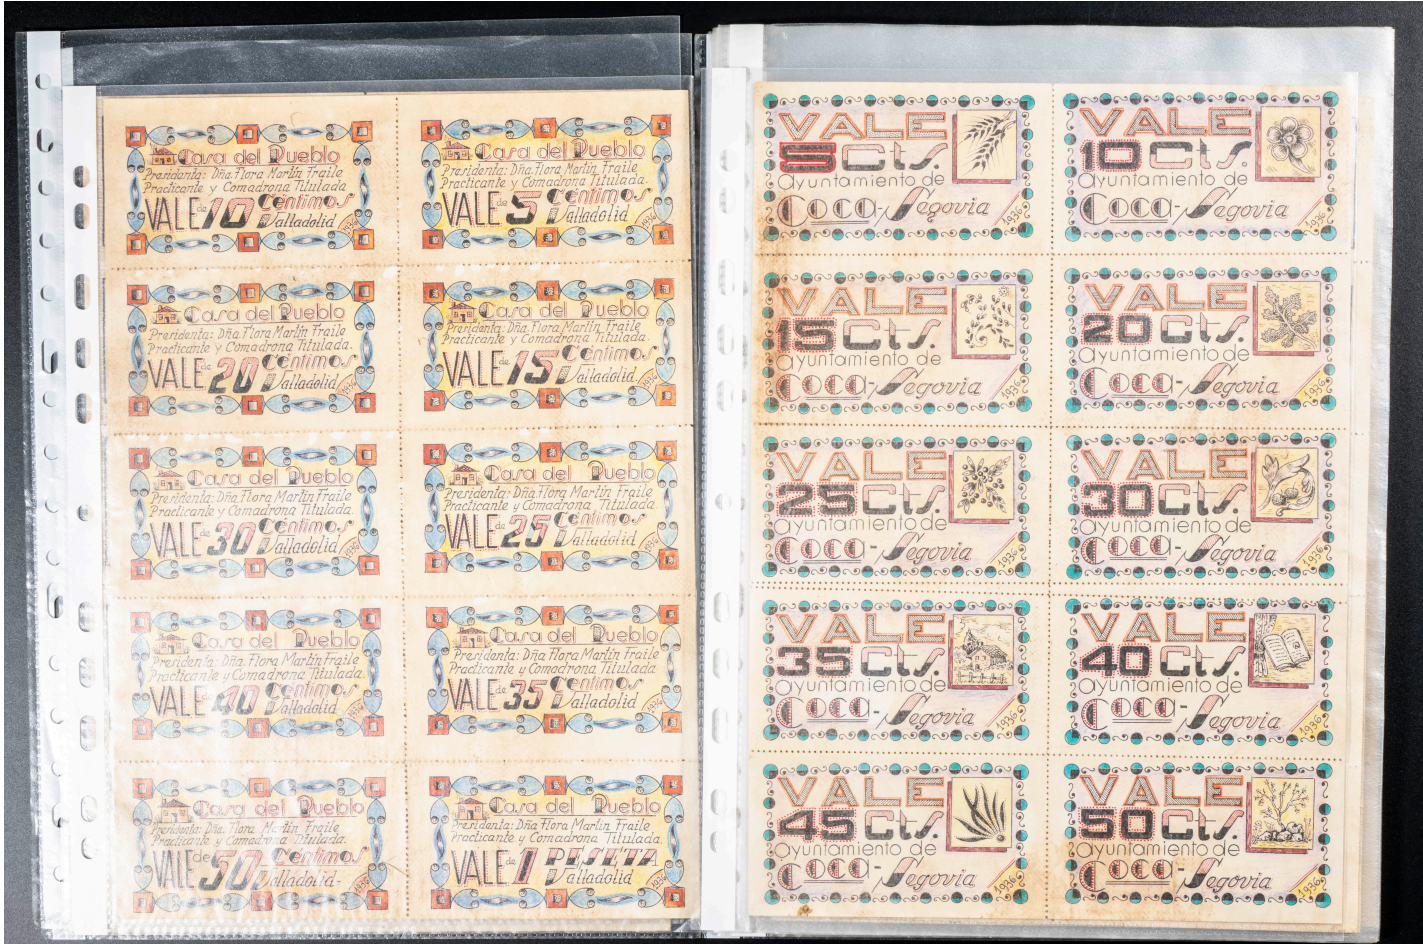 Casa del Pueblo
Presidenta: Dña Flora Martín Fraile
Practicante y Comadrona Titulada.
VALE de 10 Céntimos
Valladolid 1936
Casa del Pueblo
Presidenta: Dña Flora Martín Fraile
Practicante y Comadrona Titulada.
VALE de 5 Céntimos
Valladolid 1936
Casa del Pueblo
Presidenta: Dña Flora Martín Fraile
Practicante y Comadrona Titulada.
VALE de 20 Céntimos
Valladolid 1936
Casa del Pueblo
Presidenta: Dña Flora Martín Fraile
Practicante y Comadrona Titulada.
VALE de 15 Céntimos
Valladolid 1936
Casa del Pueblo
Presidenta: Dña Flora Martín Fraile
Practicante y Comadrona Titulada.
VALE de 30 Céntimos
Valladolid 1936
Casa del Pueblo
Presidenta: Dña Flora Martín Fraile
Practicante y Comadrona Titulada.
VALE de 25 Céntimos
Valladolid 1936
Casa del Pueblo
Presidenta: Dña Flora Martín Fraile
Practicante y Comadrona Titulada.
VALE de 40 Céntimos
Valladolid- 1936
Casa del Pueblo
Presidenta: Dña Flora Martín Fraile
Practicante y Comadrona Titulada.
VALE de 35 Céntimos
Valladolid 1936
Casa del Pueblo
Presidenta: Dña Flora Martín Fraile
Practicante y Comadrona Titulada.
VALE de 50 Céntimos
Valladolid- 1936
Casa del Pueblo
Presidenta: Dña Flora Martín Fraile
Practicante y Comadrona Titulada.
VALE de 1 PESETA
Valladolid 1936
VALE
5 Cts.
Ayuntamiento de
Coca-Segovia 1936
VALE
10 Cts.
Ayuntamiento de
Coca-Segovia 1936
VALE
15 Cts.
Ayuntamiento de
Coca-Segovia 1936
VALE
20 Cts.
Ayuntamiento de
Coca-Segovia 1936
VALE
25 Cts.
Ayuntamiento de
Coca-Segovia 1936
VALE
30 Cts.
Ayuntamiento de
Coca-Segovia 1936
VALE
35 Cts.
Ayuntamiento de
Coca-Segovia 1936
VALE
40 Cts.
Ayuntamiento de
Coca-Segovia 1936
VALE
45 Cts.
Ayuntamiento de
Coca-Segovia 1936
VALE
50 Cts.
Ayuntamiento de
Coca-Segovia 1936